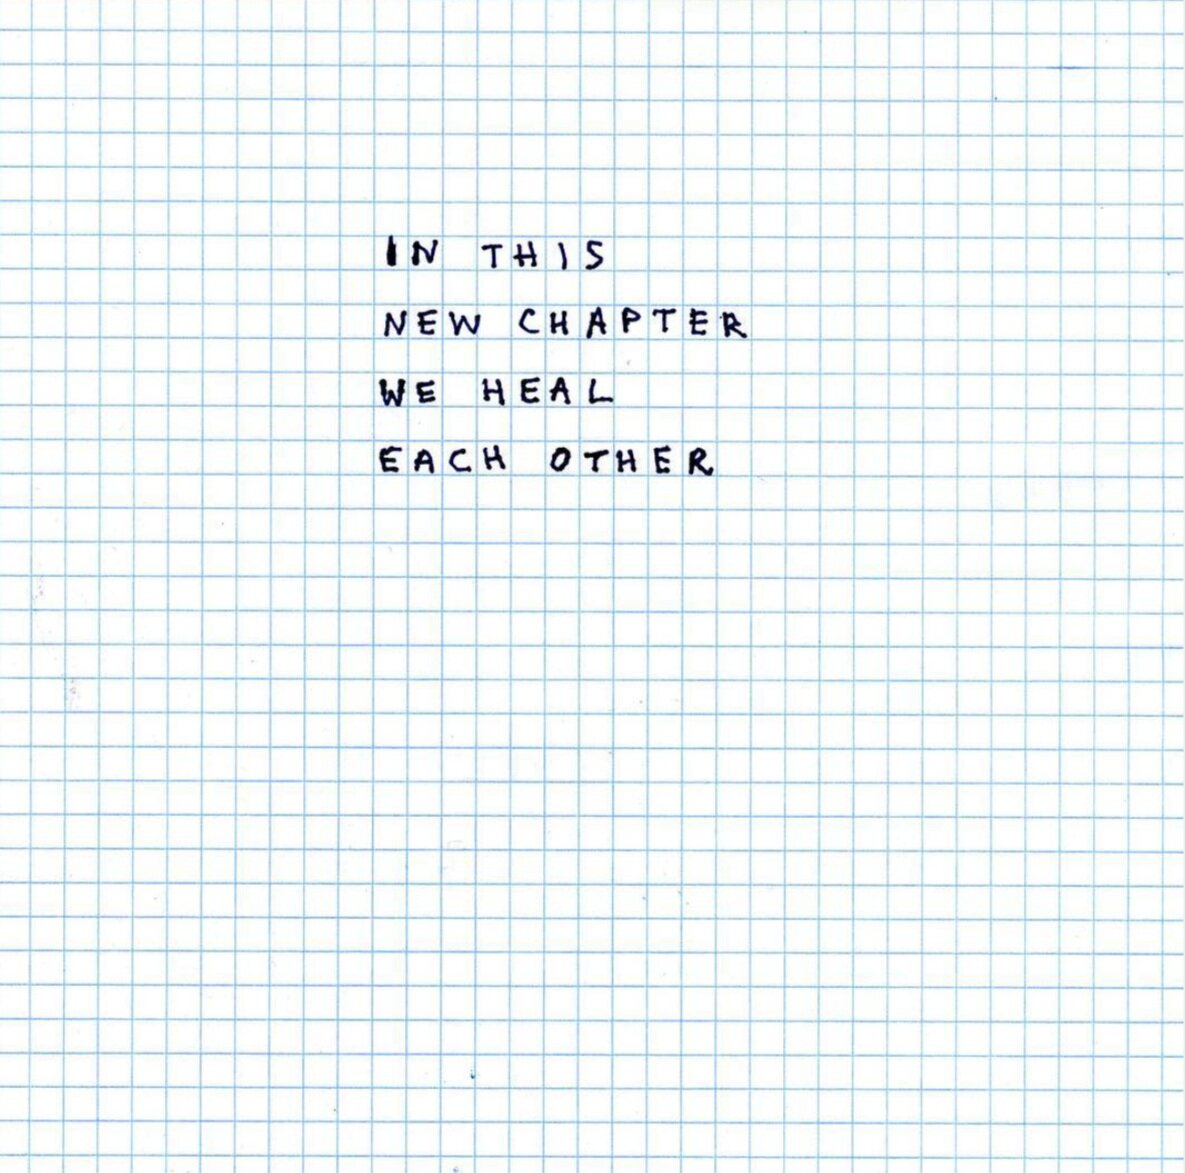 IN THIS
NEW CHAPTER
WE HEAL
EACH OTHER